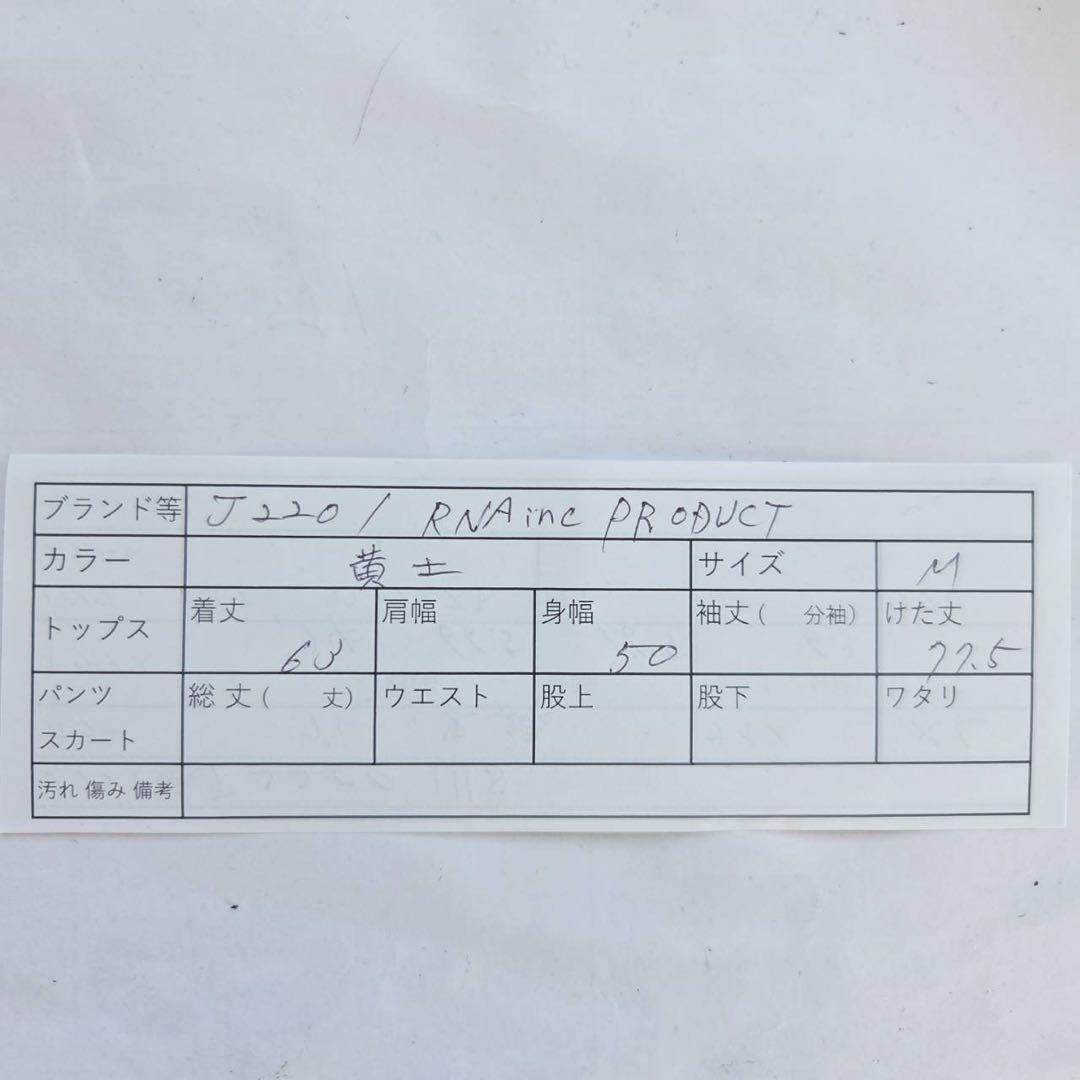 ブランド等 J220 / RNA inc PRODUCT
カラー 黄土 サイズ M
トップス 着丈 63 肩幅 身幅 50 袖丈( 分袖) けた丈 77.5
パンツ スカート 総丈( 丈) ウエスト 股上 股下 ワタリ
汚れ 傷み 備考